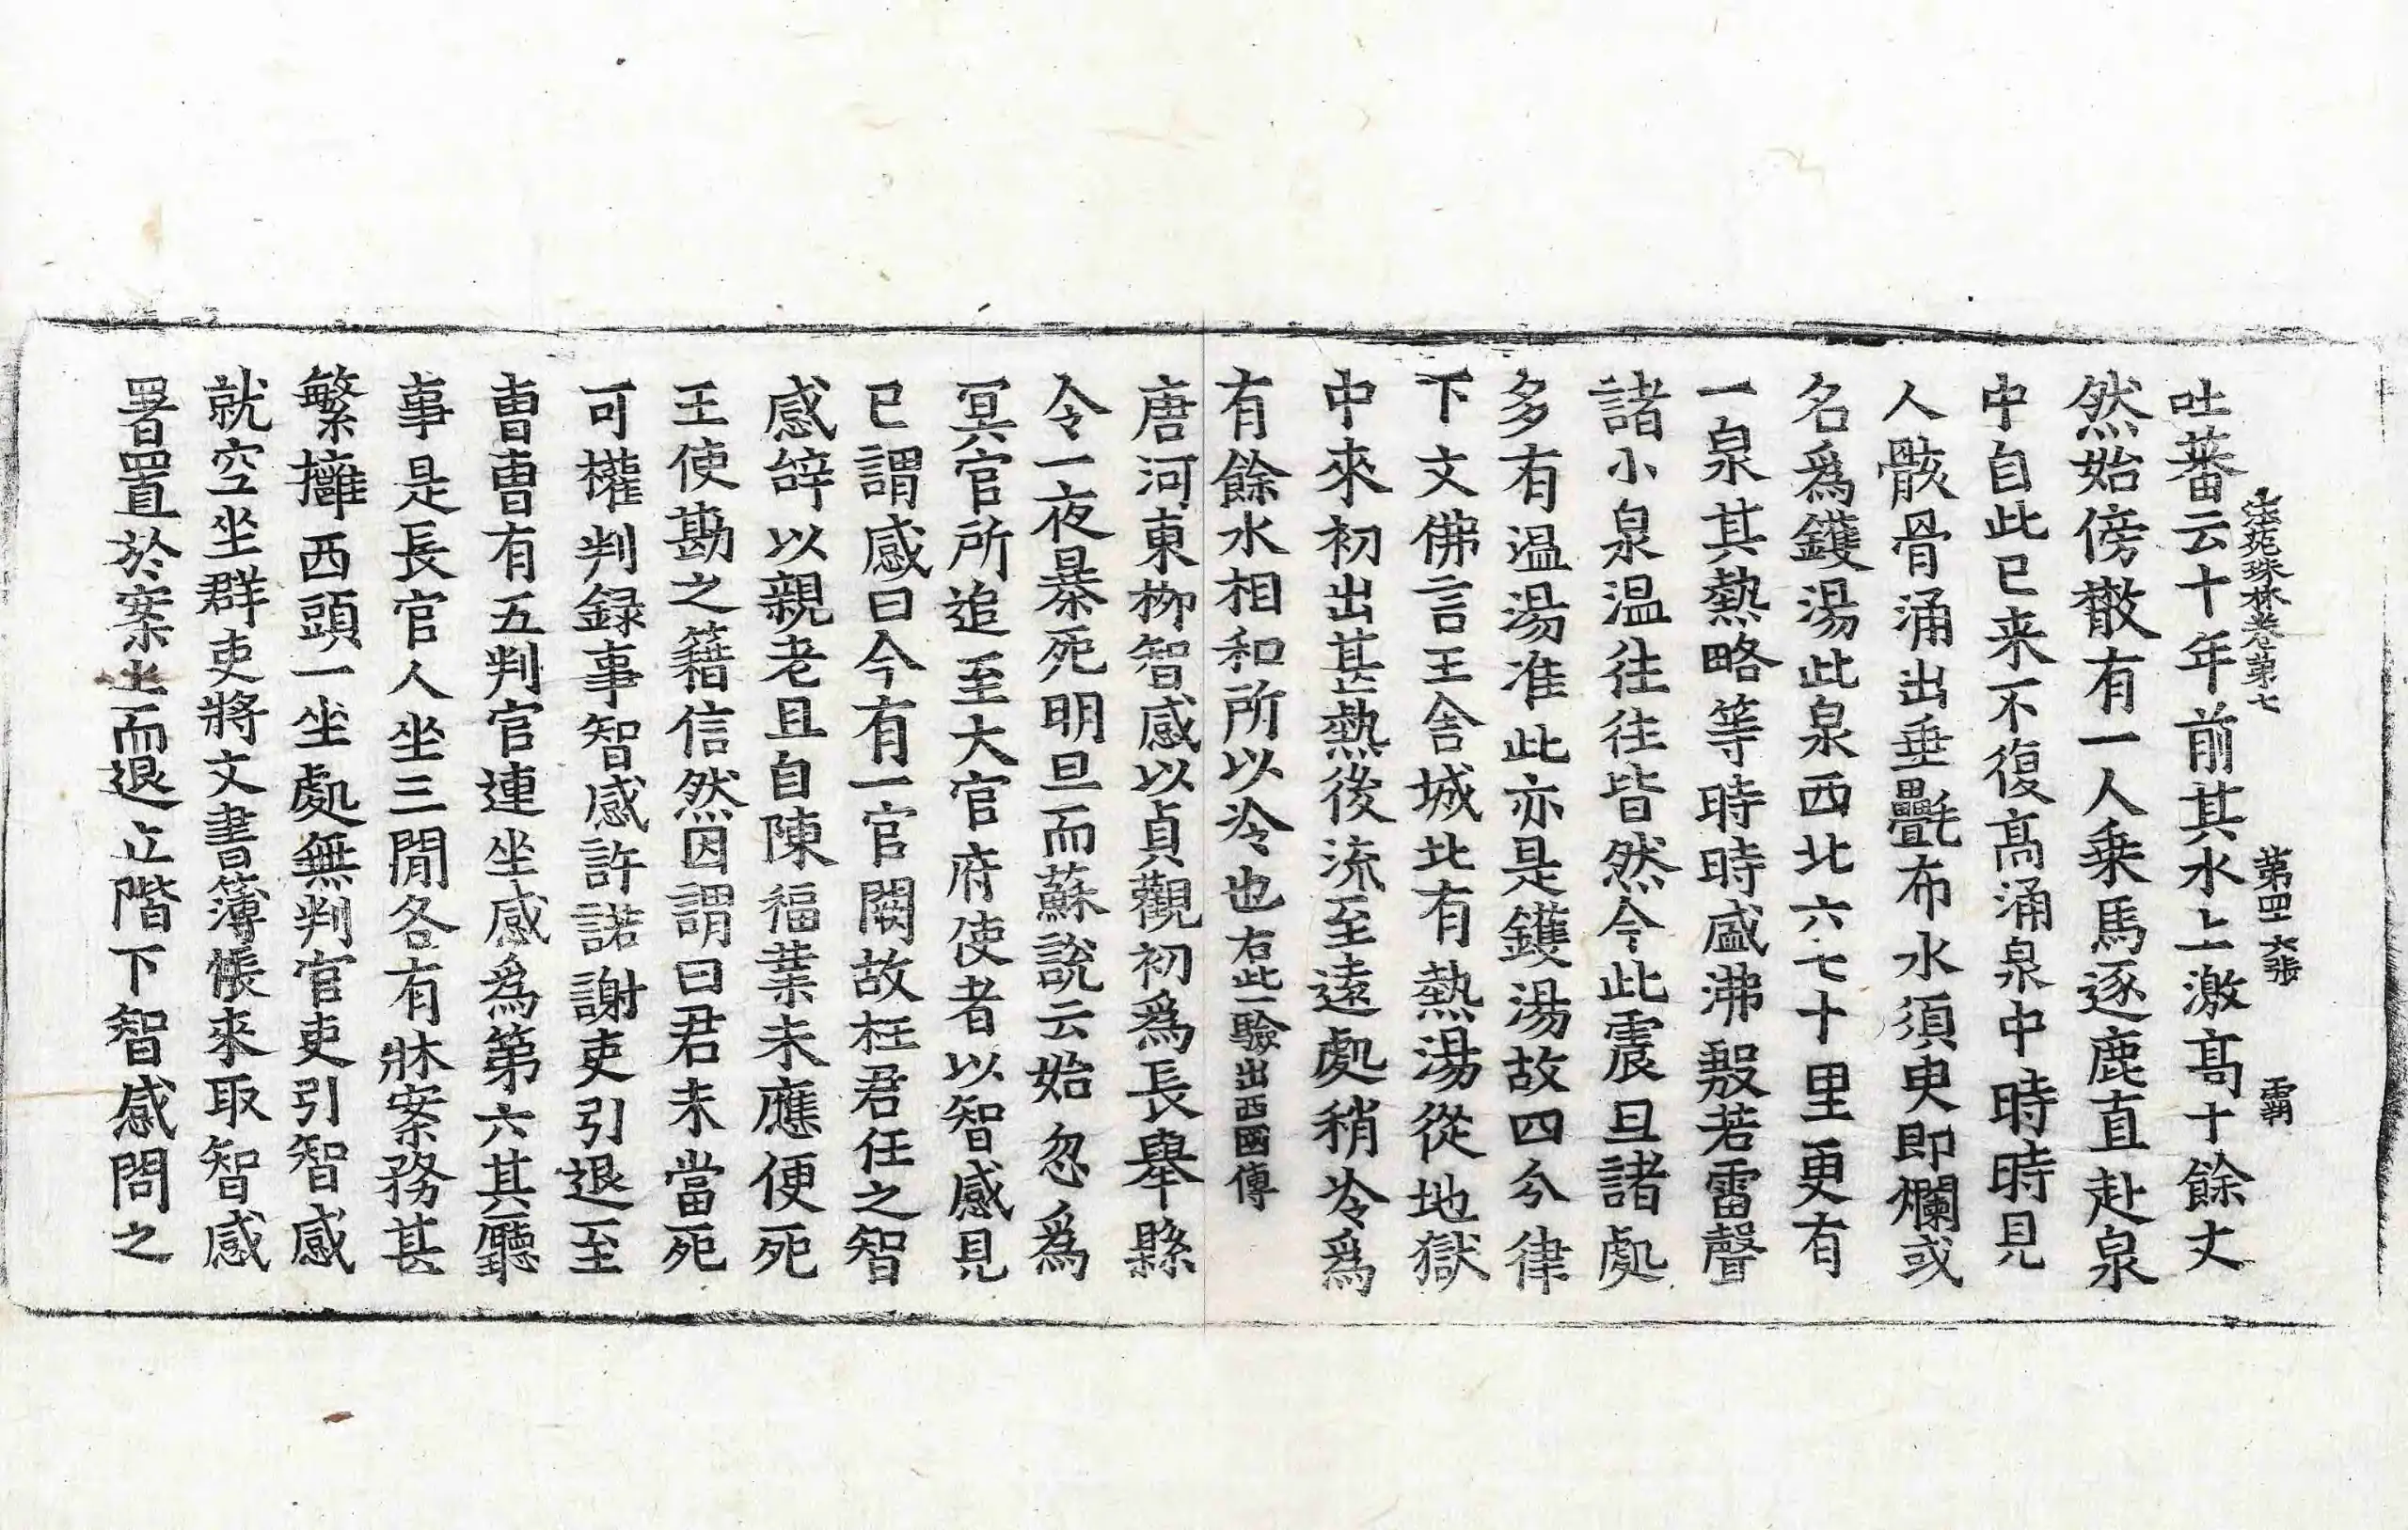 法苑珠林卷第七 第四十六張 覇
吐蕃云十年前其水上激高十餘丈
然始傍散有一人乗馬逐鹿直赴泉
中自此已来不復高涌泉中時時見
人骸骨涌出垂㲲布水須臾即爛或
名爲鑊湯此泉西北六七十里更有
一泉其熱略等時時盛沸殷若雷聲
諸小泉温往往皆然今此震旦諸處
多有温湯准此亦是鑊湯故四分律
下文佛言王舍城北有熱湯從地獄
中來初出甚熱後流至遠處稍冷爲
有餘水相和所以冷也右此一驗出西國傳
唐河東柳智感以貞觀初爲長舉縣
令一夜暴死明旦而蘇說云始忽爲
冥官所追至大官府使者以智感見
已謂感曰今有一官闕故枉君任之智
感辝以親老且自陳福業未應便死
王使勘之籍信然因謂曰君未當死
可權判録事智感許諾謝吏引退至
曹曹有五判官連坐感爲第六其廳
事是長官人坐三間各有牀案務甚
繁擁西頭一坐處無判官吏引智感
就空坐群吏將文書簿帳來取智感
署置於案上而退立階下智感問之